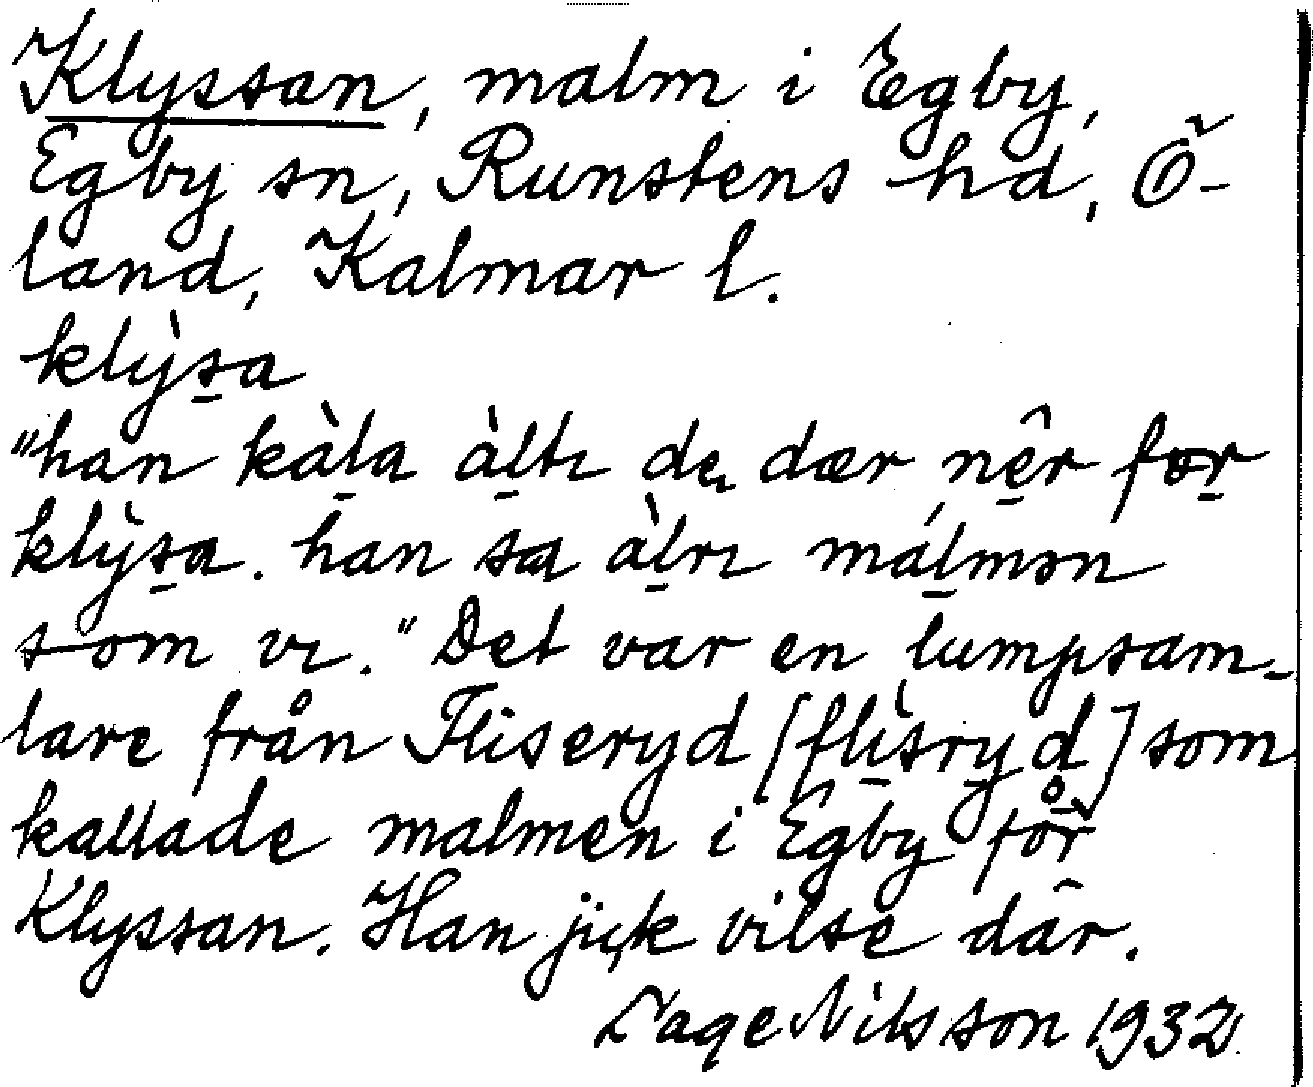 Klyssan, malm i Egby,
Egby sn, Runstens hd, Ö-
land, Kalmar l.
klỳs̱a
"han kàḻa àḻtı de dær nê̱r foṟ
klỳs̱a. han sa àḻrı máḻmən
som vı." Det var en lumpsam-
lare från Fliseryd [flìsry̱d] som
kallade malmen i Egby för
Klyssan. Han jick vilse där.
Lage Nilsson 1932